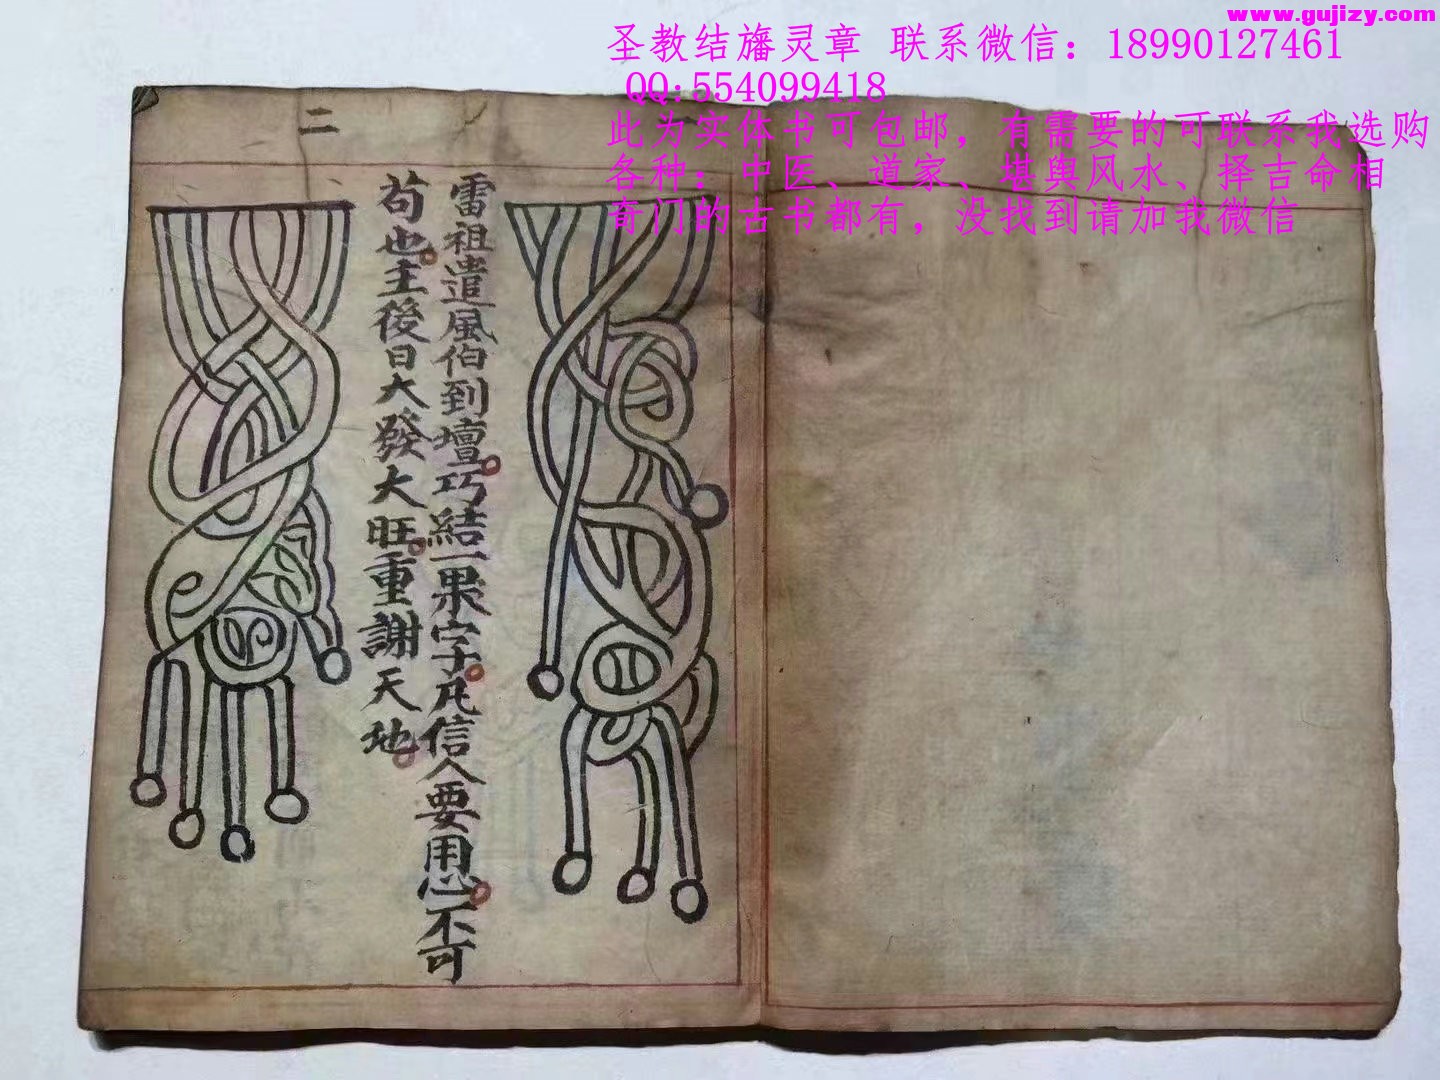 www.gujizy.com
圣教结旛灵章 联系微信：18990127461
QQ:554099418
此为实体书可包邮，有需要的可联系我选购
各种：中医、道家、堪舆风水、择吉命相
奇门的古书都有，没找到请加我微信
二
雷祖遣風伯到壇巧結一果字凡信人要用心不可
苟也主後日大發大旺重謝天地